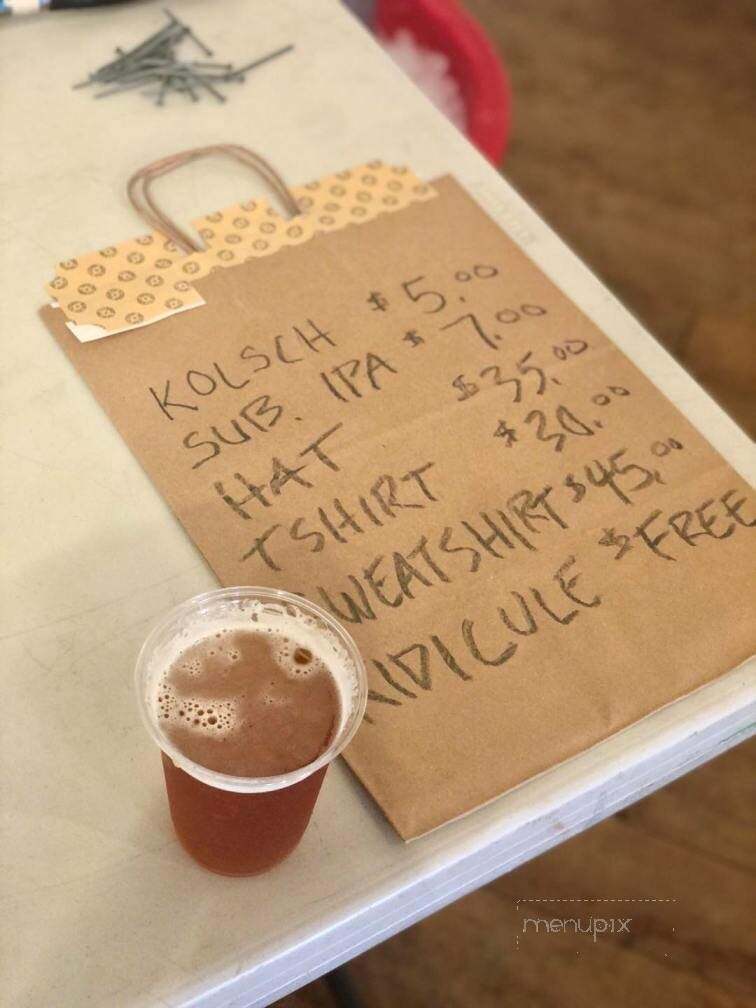 KOLSCH $5.00
SUB. IPA $7.00
HAT $35.00
TSHIRT $30.00
SWEATSHIRT $45.00
RIDICULE $FREE
menupix